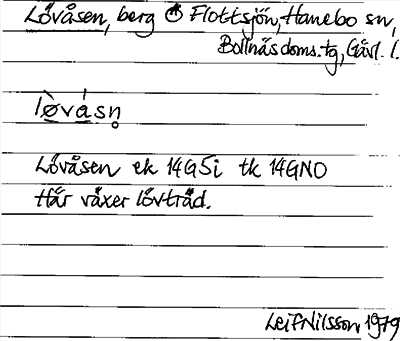 Lövåsen, berg Ö Flottsjön, Hanebo sn,
Bollnäs doms. tg, Gävl. l.
lø̀vásn̥
Lövåsen ek 14G5i tk 14GNO
Här växer lövträd.
Leif Nilsson 1979